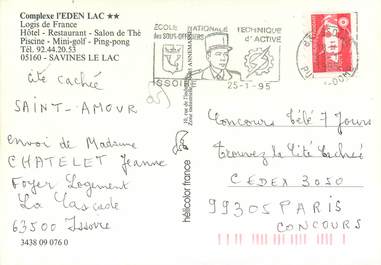 Complexe l'EDEN LAC ★★
Logis de France
Hôtel - Restaurant - Salon de Thé
Piscine - Mini-golf - Ping-pong
Tél. 92.44.20.53
05160 - SAVINES LE LAC
ECOLE NATIONALE TECHNIQUE
des SOUS-OFFICIERS D'ACTIVE
ISSOIRE
25-1-95
Cité cachée
SAINT-AMOUR
(05)
envoi de Madame
CHATELET Jeanne
Foyer Logement
La Cascade
63500 Issoire
3438 09 076 0
hélicolor france
Concours Télé 7 Jours
Trouvez la Cité Cachée
CEDEX 3050
99305 PARIS
CONCOURS